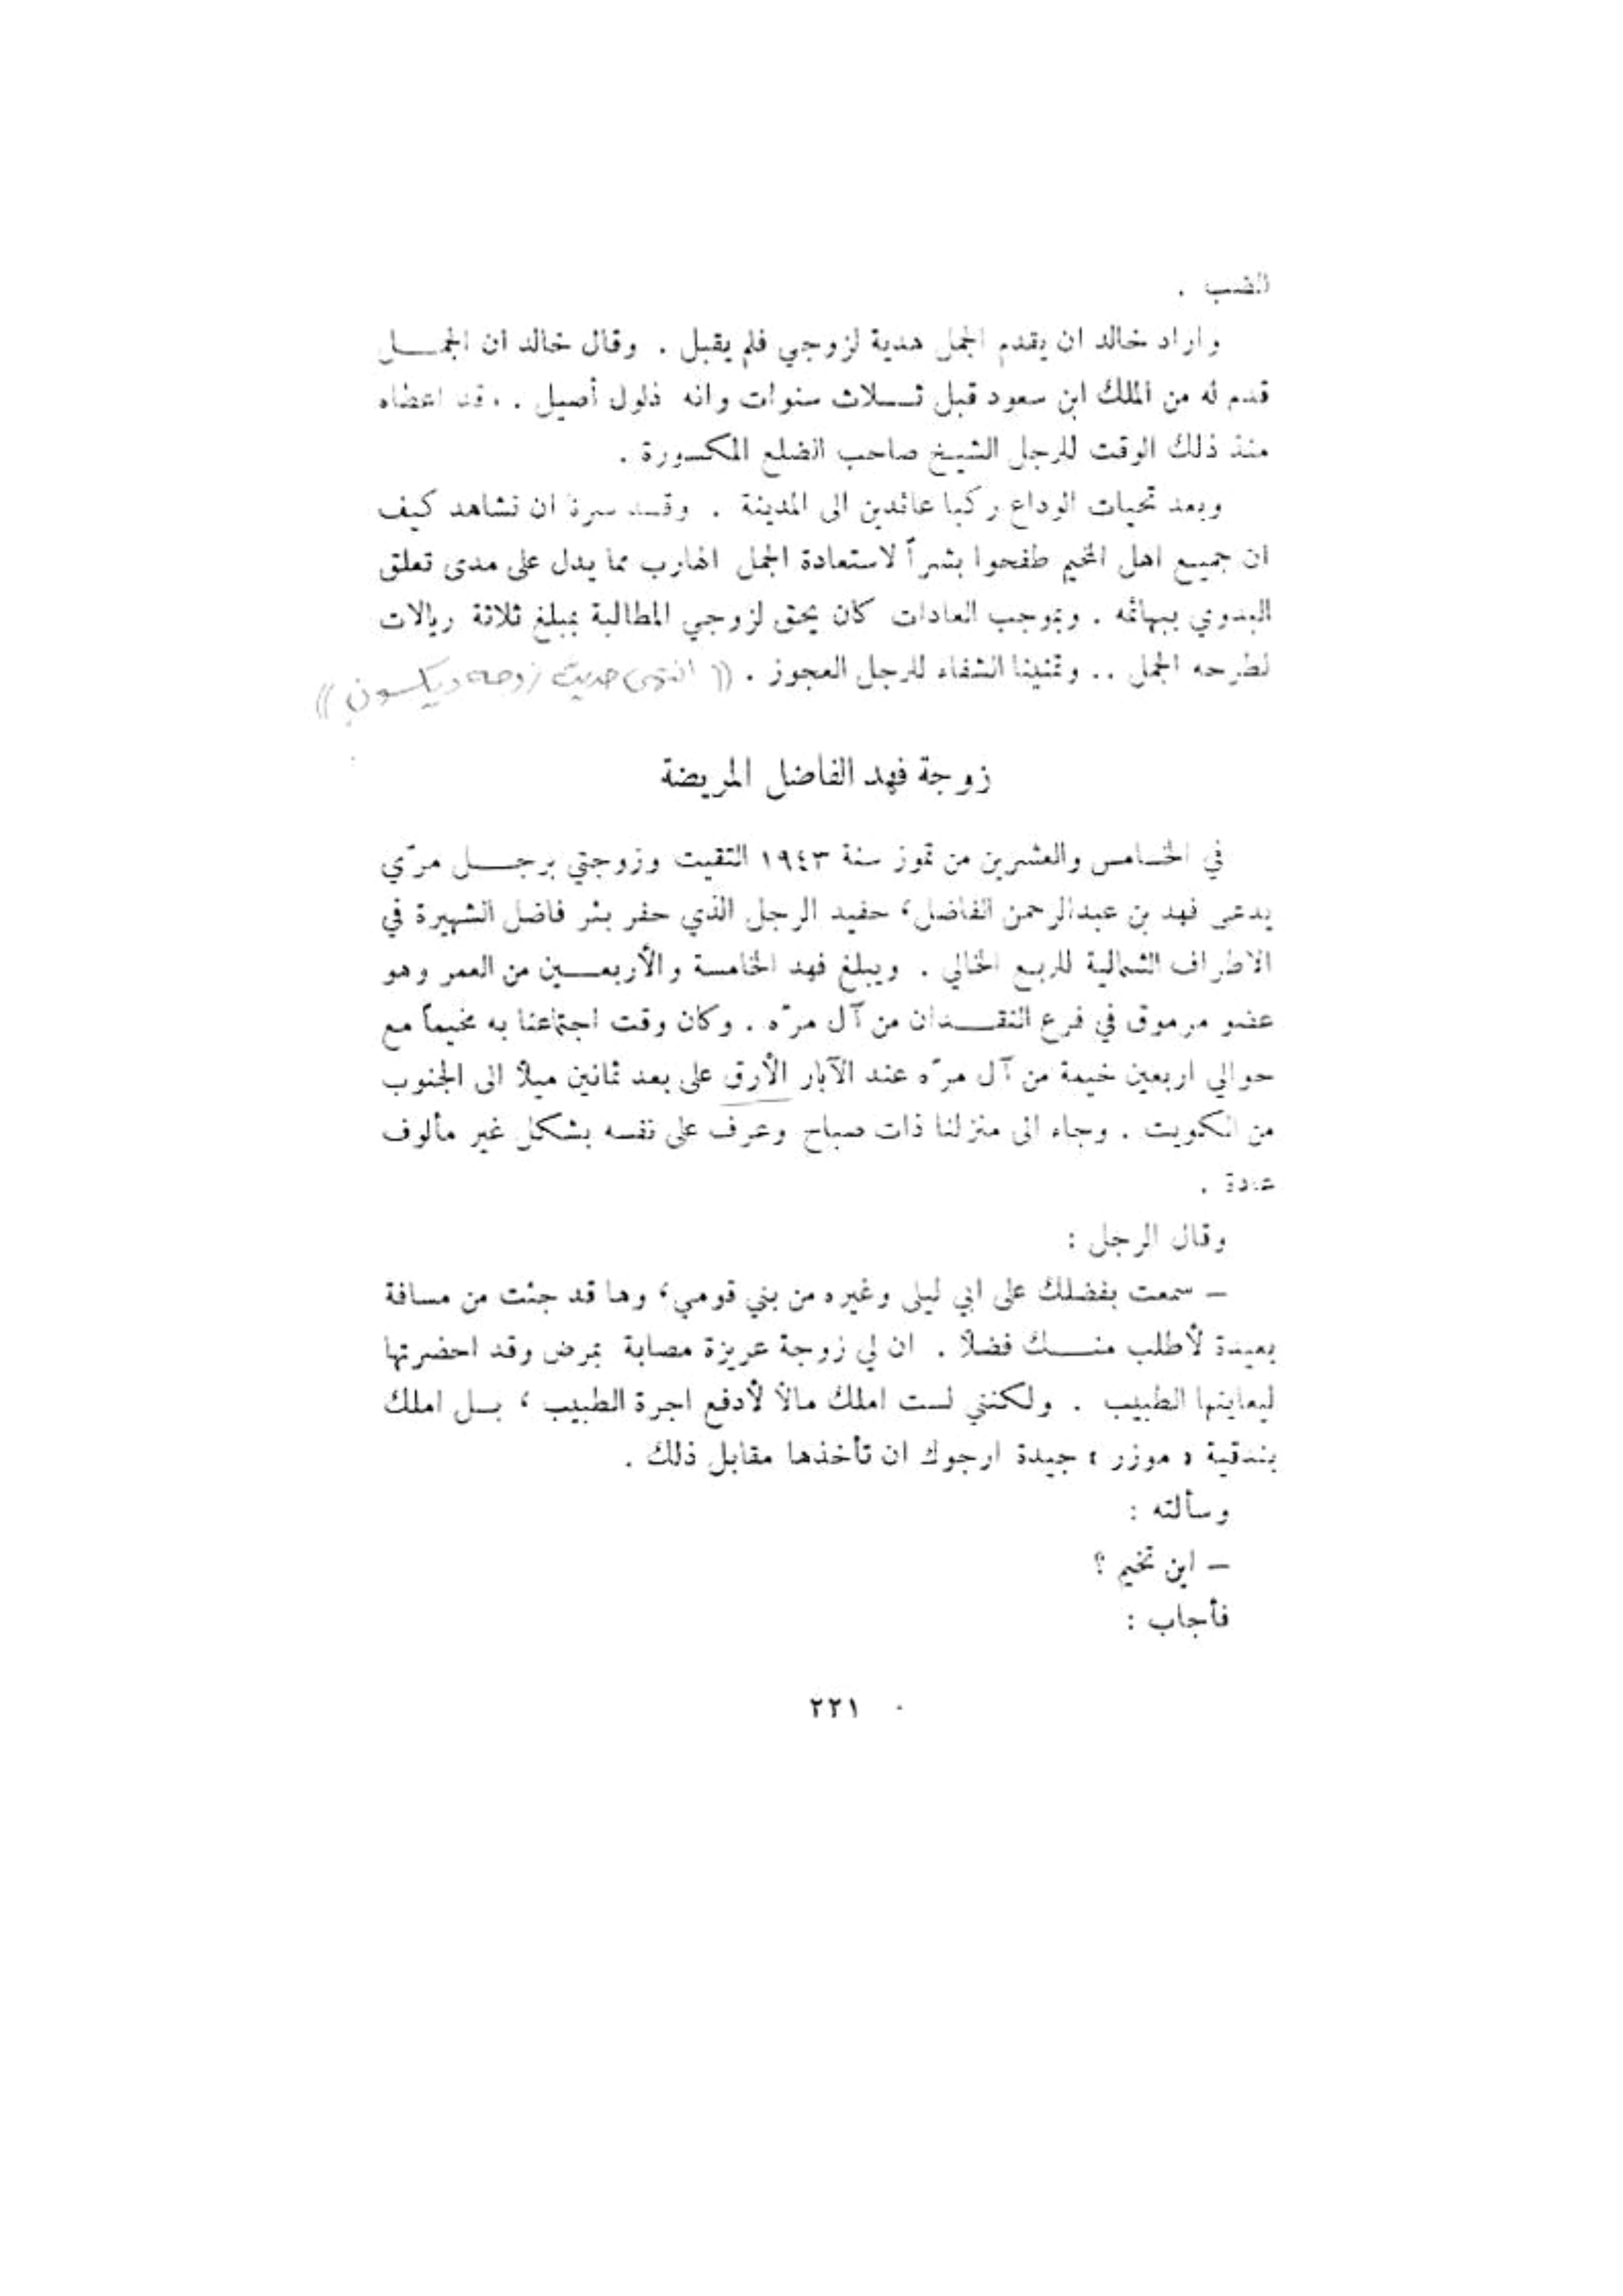 الضب .
واراد خالد ان يقدم الجمل هدية لزوجي فلم يقبل . وقال خالد ان الجمل
قدم له من الملك ابن سعود قبل ثلاث سنوات وانه ذلول أصيل . . قد اعطاه
منذ ذلك الوقت للرجل الشيخ صاحب الضلع المكسورة .
وبعد تحيات الوداع ركبا عائدين الى المدينة . وقد سرنا ان نشاهد كيف
ان جميع اهل المخيم طفحوا بشراً لاستعادة الجمل الهارب مما يدل على مدى تعلق
البدوي ببهائمه . وبموجب العادات كان يحق لزوجي المطالبة بمبلغ ثلاثة ريالات
لطرحه الجمل .. وتمنينا الشفاء للرجل العجوز . (( انتهى حديث زوجه ديكسون ))
زوجة فهد الفاضل المريضة
في الخامس والعشرين من تموز سنة ١٩٤٣ التقيت وزوجتي برجل مرّي
يدعى فهد بن عبدالرحمن الفاضل، حفيد الرجل الذي حفر بئر فاضل الشهيرة في
الاطراف الشمالية للربع الخالي . ويبلغ فهد الخامسة والأربعين من العمر وهو
عضو مرموق في فرع النقدان من آل مرّه . وكان وقت اجتماعنا به مخيماً مع
حوالي اربعين خيمة من آل مرّه عند الآبار الأرق على بعد ثمانين ميلاً الى الجنوب
من الكويت . وجاء الى منزلنا ذات صباح وعرف على نفسه بشكل غير مألوف
عادة .
وقال الرجل :
– سمعت بفضلك على ابي ليلى وغيره من بني قومي، وها قد جئت من مسافة
بعيدة لأطلب منك فضلاً . ان لي زوجة عزيزة مصابة بمرض وقد احضرتها
ليعاينها الطبيب . ولكنني لست املك مالاً لأدفع اجرة الطبيب ، بل املك
بندقية « موزر » جيدة ارجوك ان تأخذها مقابل ذلك .
وسألته :
– اين تخيم ؟
فأجاب :
٢٢١